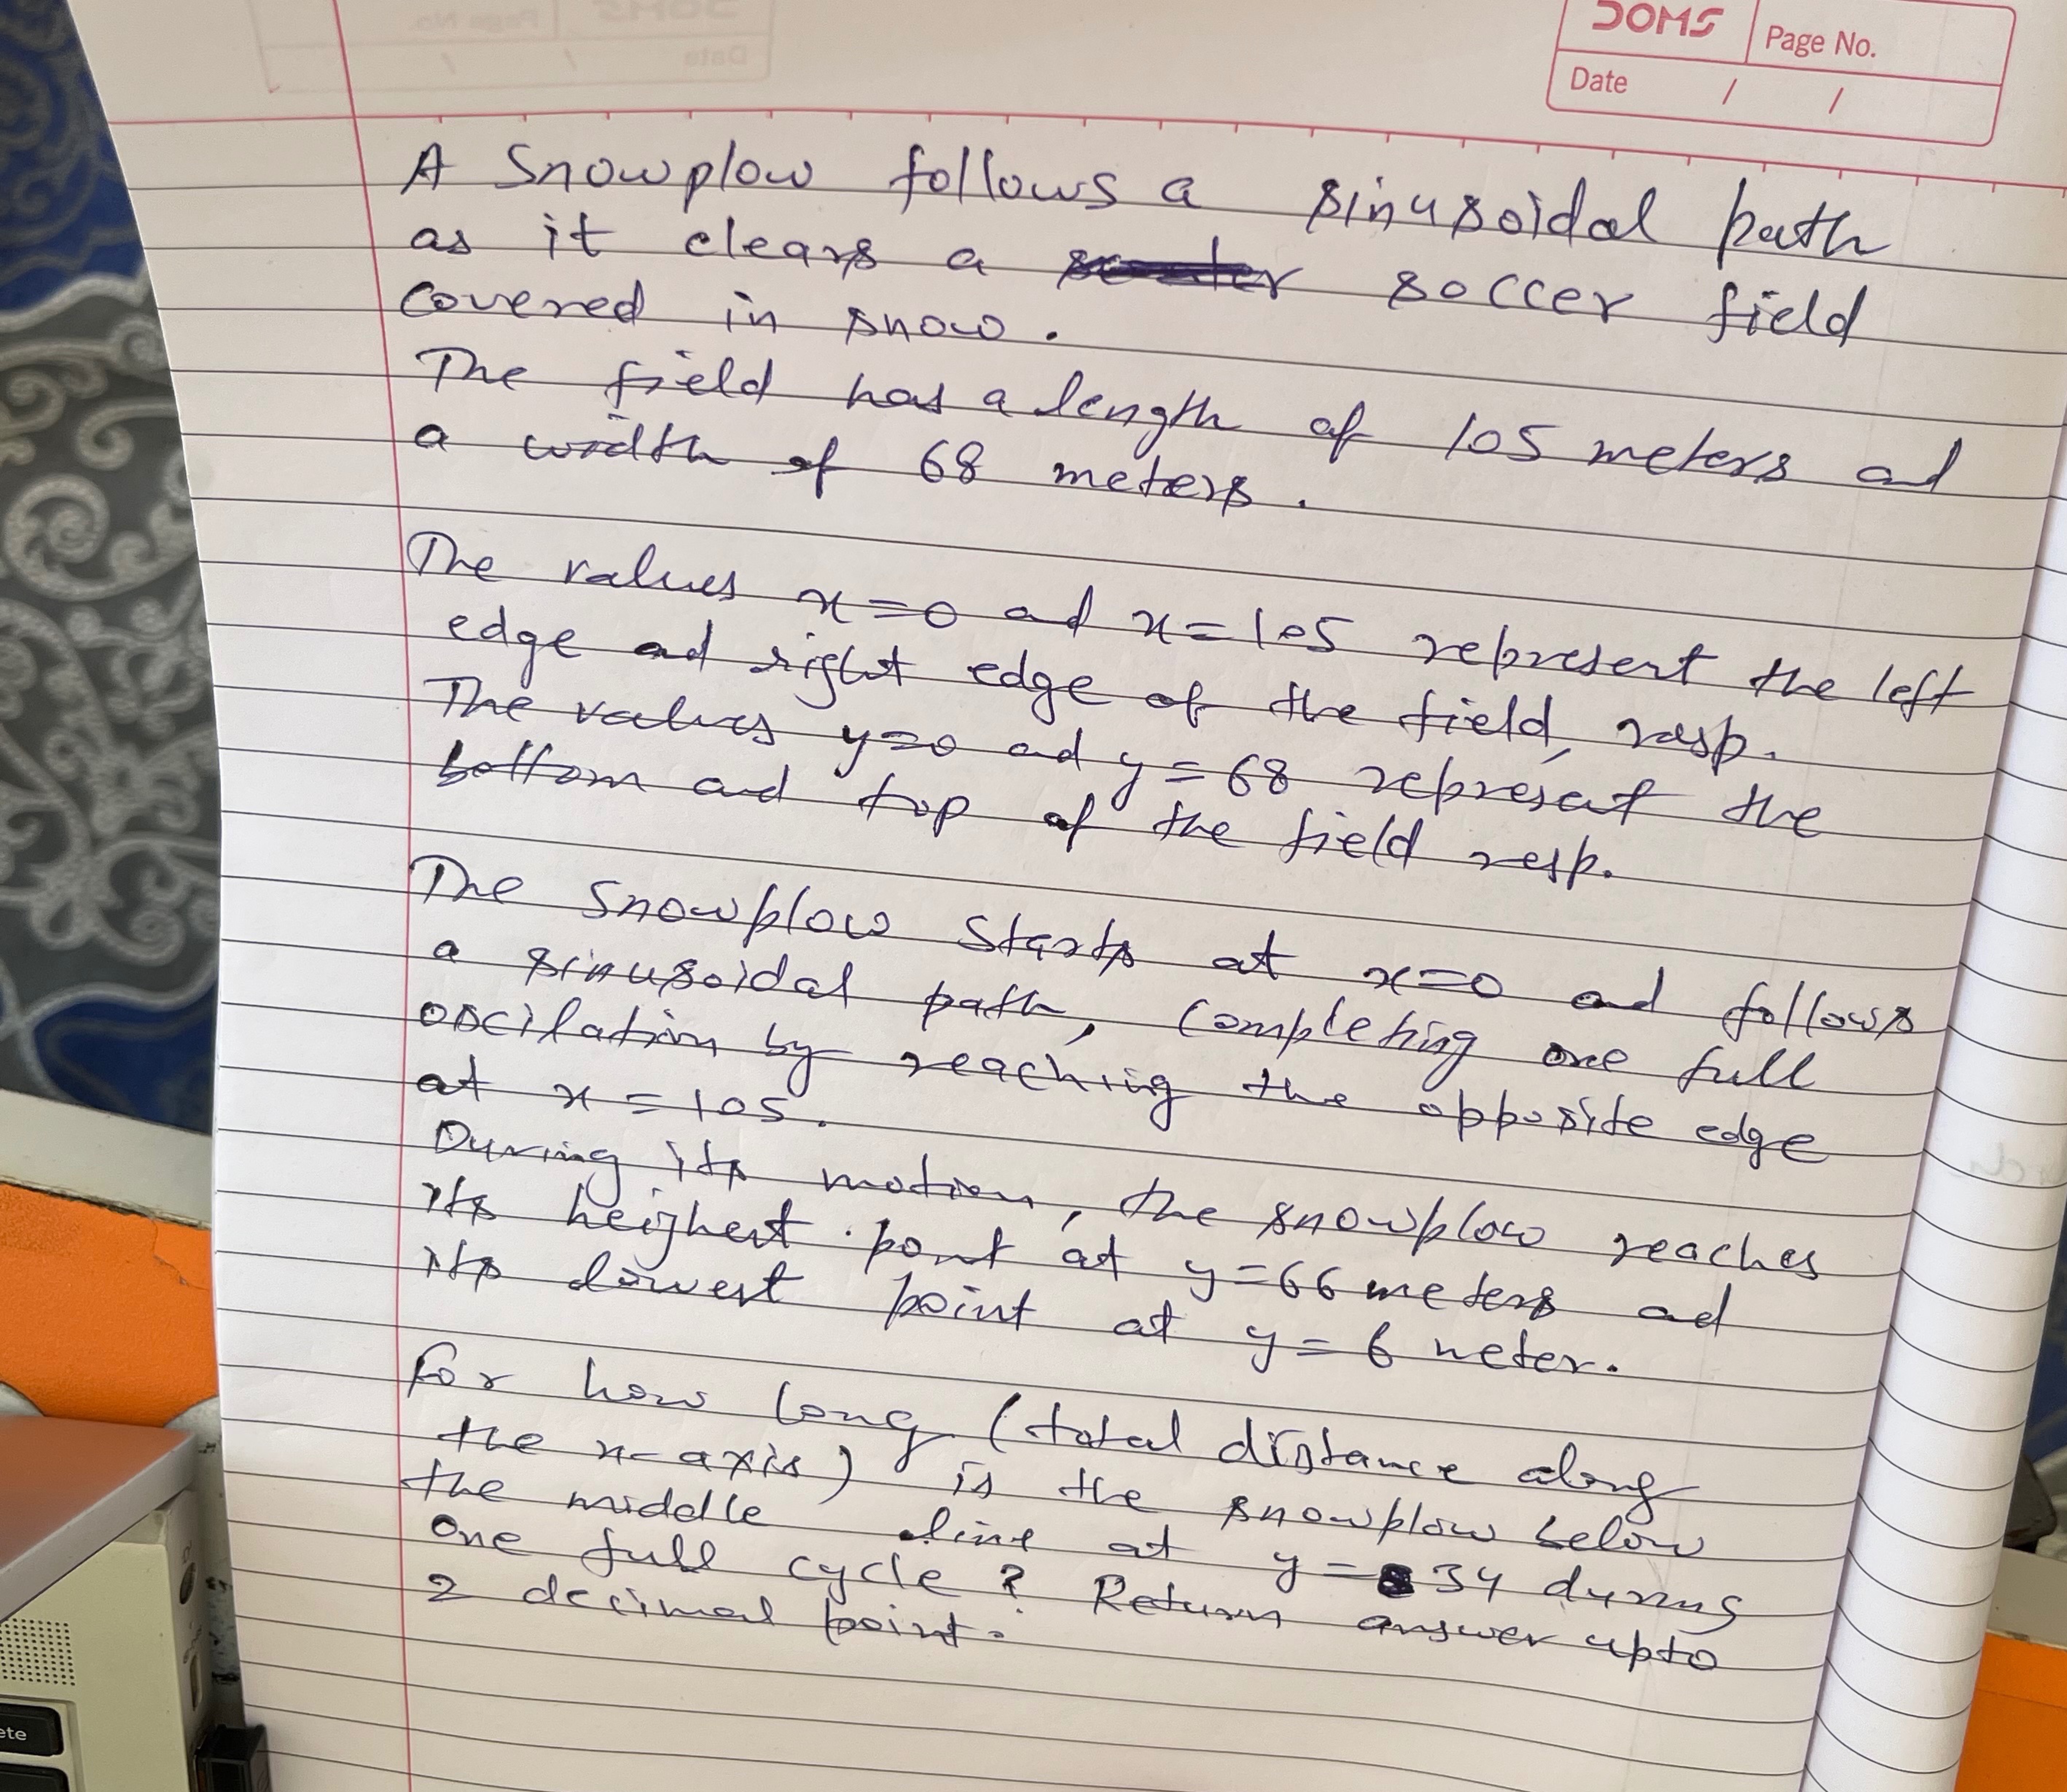 DOMS
Page No.
Date / /
A Snowplow follows a sinusoidal path
as it clears a soccer field
covered in snow.
The field has a length of 105 meters ad
a width of 68 meters.
The values x=0 ad x=105 represent the left
edge ad right edge of the field, resp.
The values y=0 ad y=68 represent the
bottom and top of the field resp.
The snowplow starts at x=0 and follows
a sinusoidal path, completing one full
oscilation by reaching the opposite edge
at x=105.
During its motion, the snowplow reaches
its heighest point at y=66 meters ad
its lowest point at y=6 meter.
For how long (total distance along
the x-axis) is the snowplow below
the middle line at y=34 during
one full cycle? Return answer upto
2 decimal point.
ete